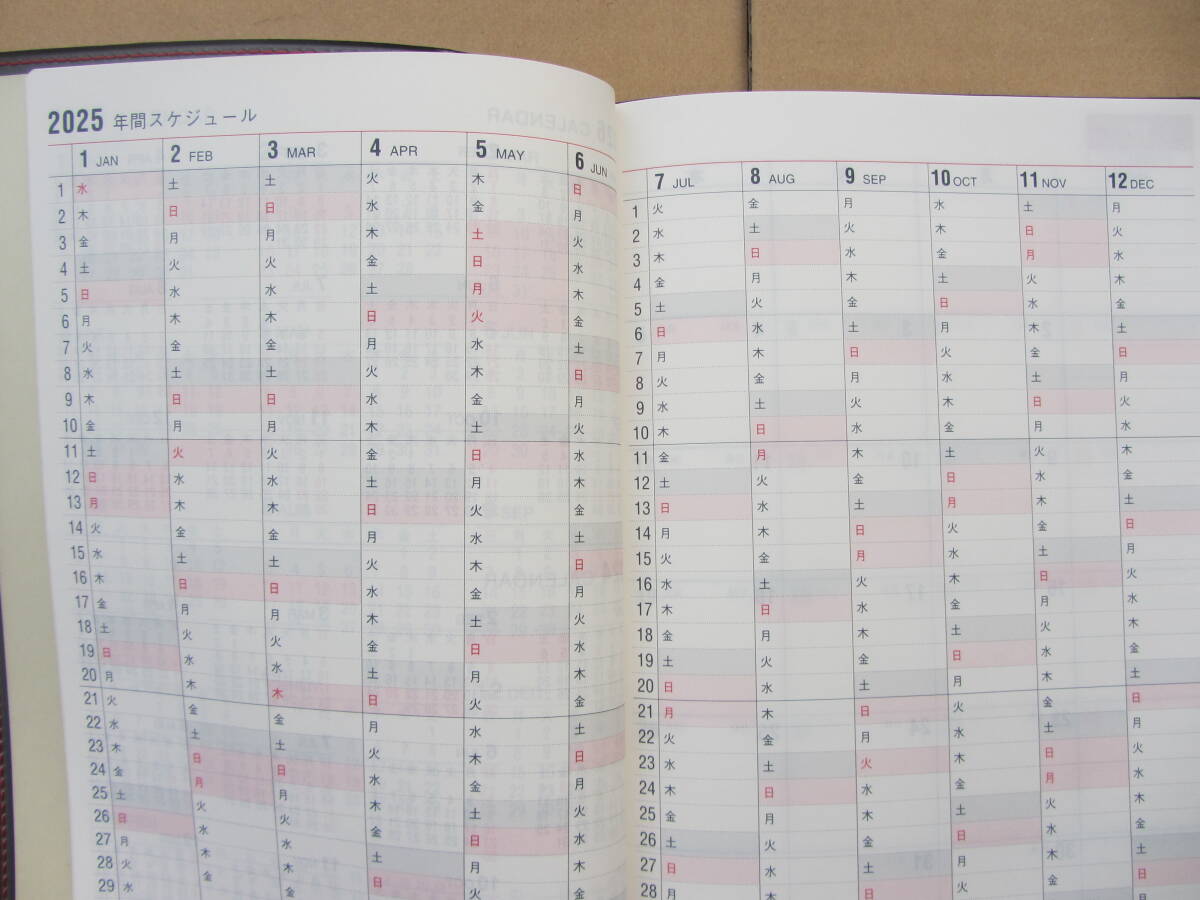 2025 年間スケジュール
1 JAN 2 FEB 3 MAR 4 APR 5 MAY 6 JUN
1 水 土 土 火 木 日
2 木 日 日 水 金 月
3 金 月 月 木 土 火
4 土 火 火 金 日 水
5 日 水 水 土 月 木
6 月 木 木 日 火 金
7 火 金 金 月 水 土
8 水 土 土 火 木 日
9 木 日 日 水 金 月
10 金 月 月 木 土 火
11 土 火 火 金 日 水
12 日 水 水 土 月 木
13 月 木 木 日 火 金
14 火 金 金 月 水 土
15 水 土 土 火 木 日
16 木 日 日 水 金 月
17 金 月 月 木 土 火
18 土 火 火 金 日 水
19 日 水 水 土 月 木
20 月 木 木 日 火 金
21 火 金 金 月 水 土
22 水 土 土 火 木 日
23 木 日 日 水 金 月
24 金 月 月 木 土 火
25 土 火 火 金 日 水
26 日 水 水 土 月 木
27 月 木 木 日 火 金
28 火 金 金
29 水
7 JUL 8 AUG 9 SEP 10 OCT 11 NOV 12 DEC
1 火 金 月 水 土 月
2 水 土 火 木 日 火
3 木 日 水 金 月 水
4 金 月 木 土 火 木
5 土 火 金 日 水 金
6 日 水 土 月 木 土
7 月 木 日 火 金 日
8 火 金 月 水 土 月
9 水 土 火 木 日 火
10 木 日 水 金 月 水
11 金 月 木 土 火 木
12 土 火 金 日 水 金
13 日 水 土 月 木 土
14 月 木 日 火 金 日
15 火 金 月 水 土 月
16 水 土 火 木 日 火
17 木 日 水 金 月 水
18 金 月 木 土 火 木
19 土 火 金 日 水 金
20 日 水 土 月 木 土
21 月 木 日 火 金 日
22 火 金 月 水 土 月
23 水 土 火 木 日 火
24 木 日 水 金 月 水
25 金 月 木 土 火 木
26 土 火 金 日 水 金
27 日 水 土 月 木 土
28 月 日 火 金 日